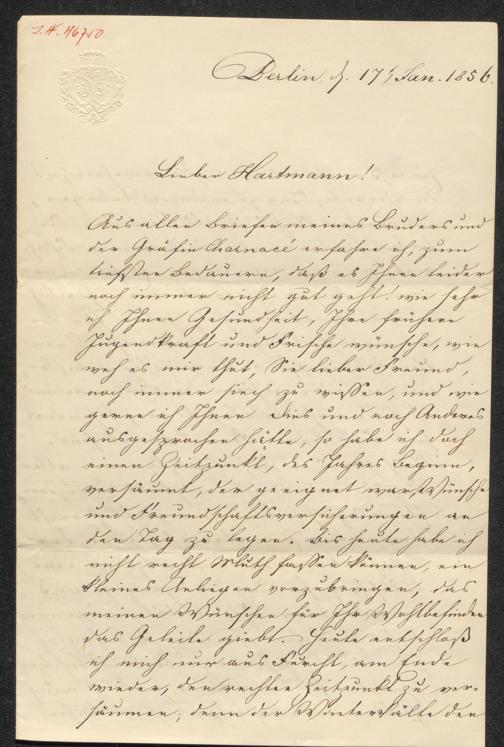 I.N. 46750
Berlin, d. 17t Jan. 1856.
Lieber Hartmann!
Aus allen Briefen meines Bruders und
der Gräfin Charnacé erfahre ich, zum
tiefsten Bedauern, daß es Ihnen leider
noch immer nicht gut geht. Wie sehr
ich Ihnen Gesundheit, Ihre frühere
Jugendkraft und Frische wünsche, wie
weh es mir thut, Sie lieber Freund,
noch immer siech zu wissen, und wie
gerne ich Ihnen Dies und noch Anderes
ausgesprochen hätte, so habe ich doch
einen Zeitpunkt, des Jahres Beginn,
versäumt, der geeignet war, Wünsche
und Freundschaftsversicherungen an
den Tag zu legen. Bis heute habe ich
nicht recht Muth fassen können, ein
kleines Anliegen vorzubringen, das
meinen Wünschen für Ihr Wohlbefinden
das Geleite giebt. Heute entschloß
ich mich nur aus Furcht, am Ende
wieder, den rechten Zeitpunkt zu ver-
säumen; denn der Winterkälte den